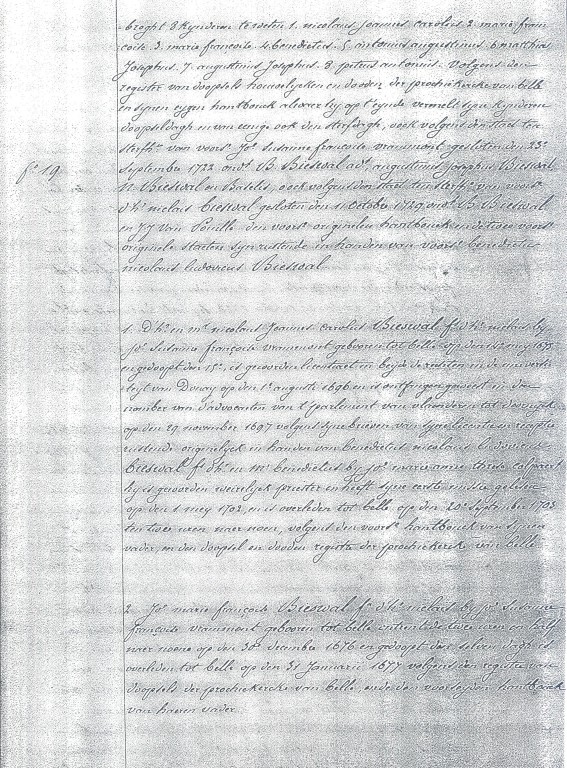 broght 8 kynderen te weten 1. nicolaus joannes carolus 2. marie fran
coise. 3. marie francoise. 4. benedictus. 5. antonius augustinus 6. matthias
Josephus. 7. augustinus Josephus. 8. petrus antonius. volgens den
register van doopsels houwelycken en dooden der prochiekercke van belle
en synen eygen hantbouck alwaer hy op 't eynde vermelt syne kynderen
doopseldagh en van eenige ook den sterfdagh, oock volgens den staet ten
sterfh. van voors. Jo. Susanne francoise vrammont gesloten den 23e
f. 19
September 1722 ond. B. Bieswal adt. augustinus Josephus Bieswal
N. Bieswal en Baselis, oock volgens den staet ten sterfh. van voors.
d'hr. niclais bieswal gesloten den 11 October 1729 ond. B. Bieswal
en J.J. Van Poucke den voors. originelen hantbouck en de twee voors.
originele staeten syn rustende in handen van voors. benedictus
nicolaus ludovicus Bieswal
1. D'hr. en mr. nicolaus Joannes carolus Bieswal fs. d'hr. niclais by
jo. Susanne francoise vrammont gebooren tot belle op den mey 1675
en gedoopt den 15e, is geworden licentiaet in beyde de rechten in de universi
teyt van Douay op den 1e augusti 1696 en is ontfangen geweest in den
nomber van d'advocaeten van 't parlement van vlaenderen tot doornyck
op den 29 november 1697 volgens syne brieven van syne licentie en receptie
rustende originelyck in handen van benedictus nicolaus ludovicus
bieswal fs. d'hr. en mr. benedictus by jo. marie anne
hy is geworden weirelyck priester en heeft syne eerste misse gelesen
op den 1 mey 1702, en is overleden tot belle op den 20e September 1703
ten twee uren naer noen, volgens den voors. hantbouck van synen
vader, en den doopsel en dooden register der prochiekercke van belle
2. Jo. marie francoise Bieswal fa. d'hr. niclais by jo. Susanne
francoise vrammont gebooren tot belle ontrent de twee uren en half
naer noene op den 30e december 1676 en gedoopt den selven dagh is
overleden tot belle op den 31 Januarii 1677 volgens den register van
doopsels der prochiekercke van belle, ende den voorseyden hantbouck
van haeren vader